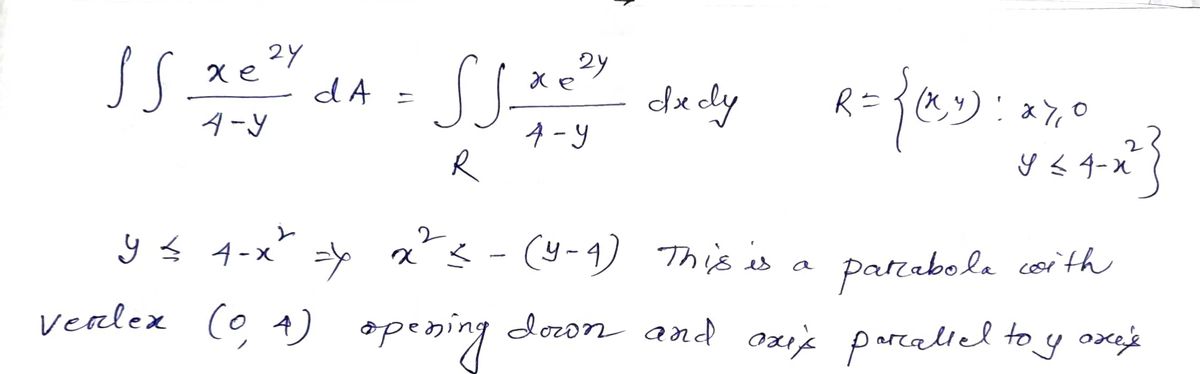 ∫∫ xe^{2y}/(4-y) dA = ∫∫_R xe^{2y}/(4-y) dxdy R = {(x,y) : x ≥ 0
y ≤ 4-x²}
y ≤ 4-x² ⇒ x² ≤ -(y-4) This is a parabola with
vertex (0, 4) opening down and axis parallel to y axis